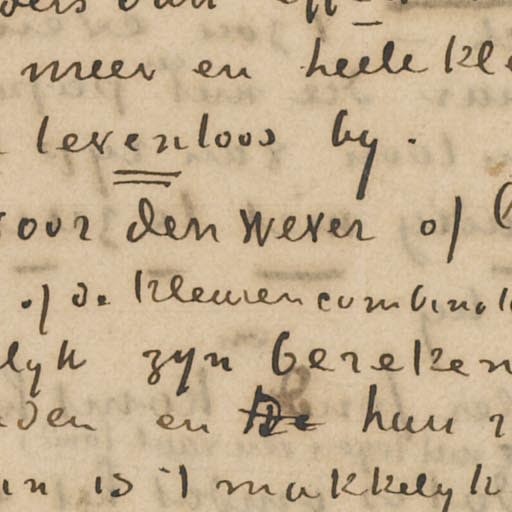 meer en heele kle
levenloos by.
voor den wever of
of de kleurencombinat
lyk zyn bereken
den en de hun
is 't makkelyk